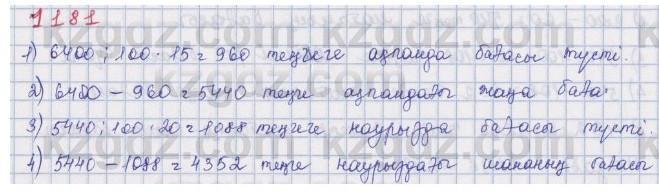 1181
1) 6400 : 100 · 15 = 960 теңгеге ақпанда бағасы түсті.
2) 6400 - 960 = 5440 теңге ақпандағы жаңа баға.
3) 5440 : 100 · 20 = 1088 теңгеге наурызда бағасы түсті.
4) 5440 - 1088 = 4352 теңге наурыздағы шананың бағасы
kzgdz.com